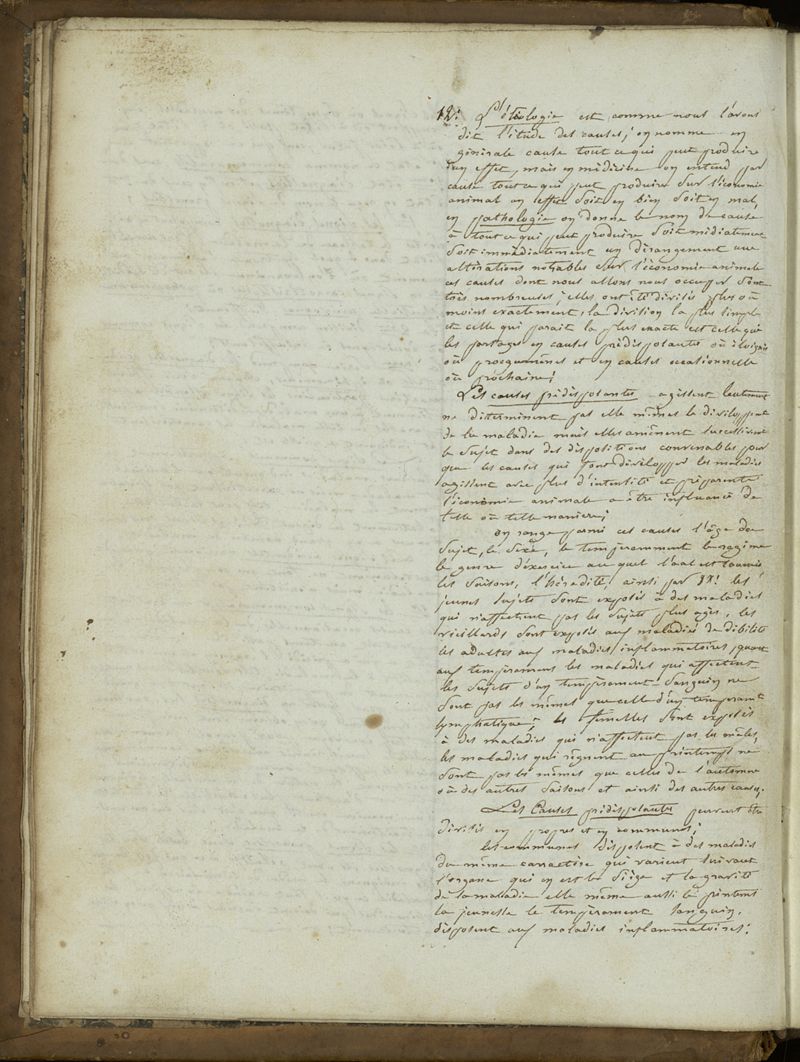 12: L'étiologie est comme nous l'avons
dit l'étude des causes; on nomme en
générale cause tout ce qui peut produire
un effet, mais en médicine on entend par
cause tout ce qui peut produire sur l'économie
animal un effet soit en bien soit en mal,
en pathologie on donne le nom de cause
à tout ce qui peut produire soit médiatement
soit immédiatement un dérangement une
altérations notables sur l'économie animale
ces causes dont nous allons nous occuper sont
très nombreuses; elles ont été divisés plus où
moins exactement, la division la plus simple
et celle qui parait la plus exacte est celle qui
les partages en causes prédisposantes où éloignés
où procguménes et en causes occationnelle
où prochaine;
Les causes prédisposantes agissent lentement
ne déterminent pas elle mêmes le développent
de la maladie mais elles aménent successivemt
le sujet dans des dispositions convenables pour
que les causes qui font développer les maladies
agissent avec plus d'intensité et préparente
l'économie animale a être influancé de
telle où telle maniere;
on range parmi ces causes l'âge du
sujet, le sexe, le temperamment le régime
le genre d'éxercice au quel l'aal est soumis
les saisons, l'hérédité; ainsi par Ex: les
jeunes sujets sont exposés à des maladies
qui n'affectent pas les sujets plus agés, les
vieillards sont exposés aux maladies de débilité
les adultes aux maladies inflammatoires, quant
aux temperamens les maladies qui affectent
les sujets d'un tempérament sanguin ne
sont pas les mêmes que celle d'un temperamt
lymphatique; les femelles sont exposés
à des maladies qui n'affectent pas les mâles,
les maladies qui régnent au printemps ne
sont pas les mêmes que celles de l'automne
où des autres saisons et ainsi des autres causes.
Les Causes prédisposantes peuvent être
divisés en propres et en communes;
les communes disposent à des maladies
du même caractère qui varient suivant
l'organe qui en est le siège et la gravité
de la maladie elle même aussi le printems
la jeunesse le temperament sanguin,
disposent aux maladies inflammatoires.